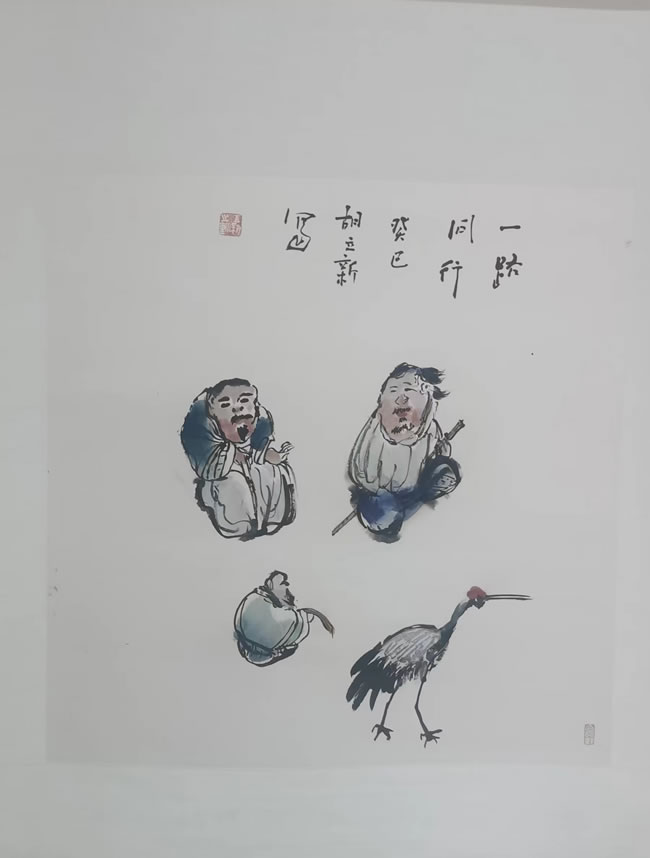 一路
同行
癸巳
胡立新
写